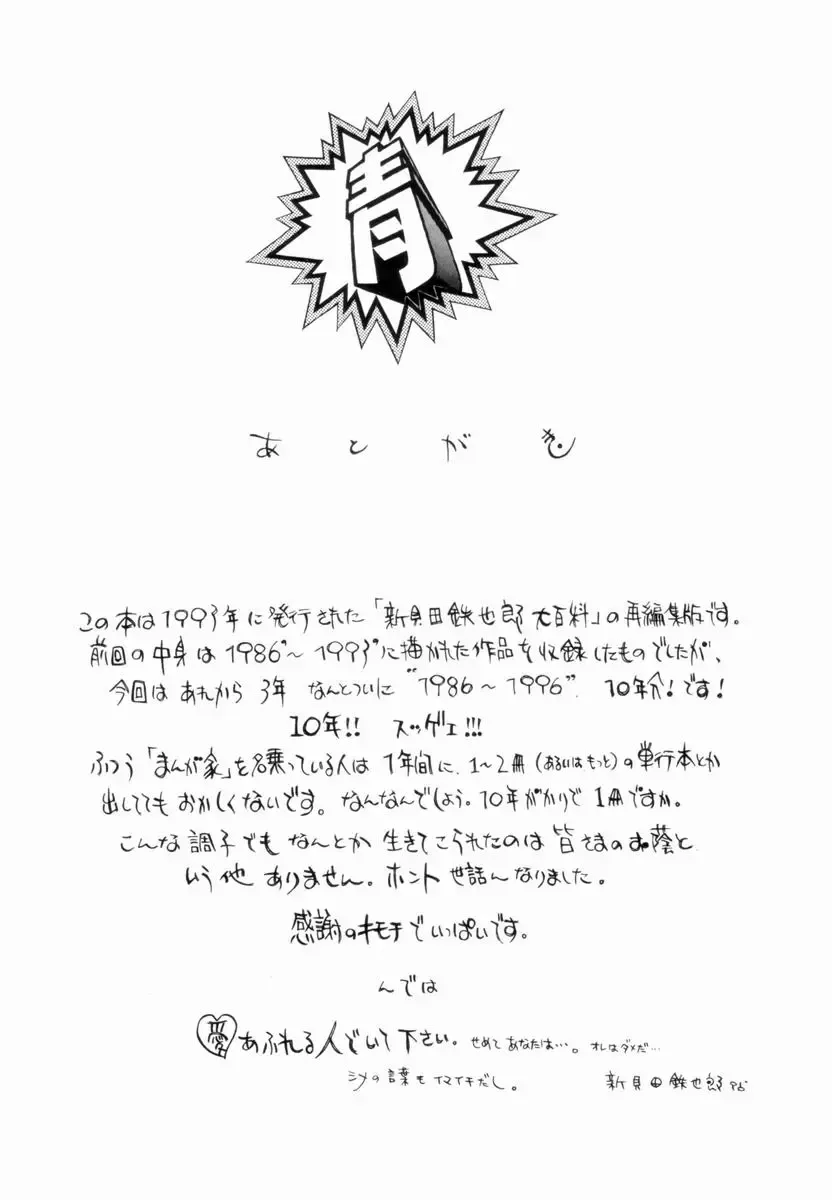 青
あとがき
この本は1993年に発行された「新貝田鉄也郎大百科」の再編集版です。
前回の中身は1986〜1993に描かれた作品を収録したものでしたが、
今回はあれから3年 なんとついに"1986〜1996". 10年分!です!
10年!! スッゲェ!!!
ふつう「まんが家」を名乗っている人は1年間に、1〜2冊(あるいはもっと)の単行本とか
出しててもおかしくないです。なんなんでしょう。10年がかりで1冊ですか。
こんな調子でもなんとか生きてこられたのは皆さまのお蔭と
いう他ありません。ホント世話んなりました。
感謝のキモチでいっぱいです。
んでは
愛あふれる人でいて下さい。せめてあなたは…。オレはダメだ…
シメの言葉もイマイチだし。 新貝田鉄也郎